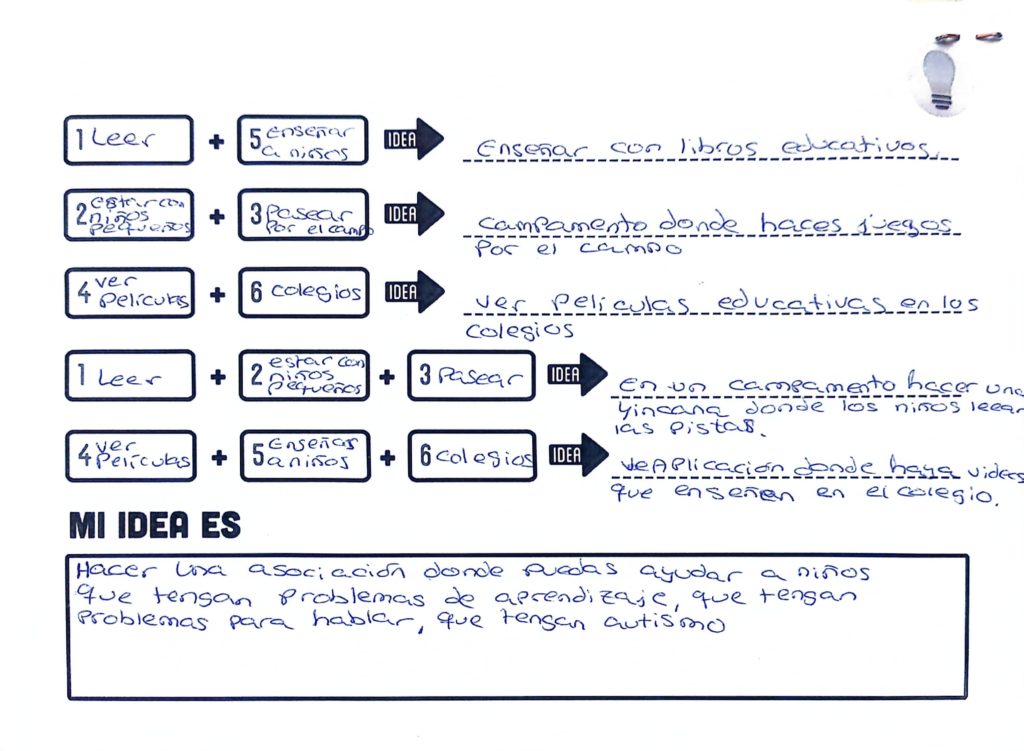 1 Leer + 5 enseñar a niños IDEA Enseñar con libros educativos.
2 estar con niños pequeños + 3 Pasear Por el campo IDEA campamento donde haces juegos
Por el campo
4 ver Películas + 6 colegios IDEA ver Películas educativas en los
colegios
1 Leer + 2 estar con niños pequeños + 3 Pasear IDEA En un campamento hacer una
yincana donde los niños leean
las pistas.
4 ver Películas + 5 Enseñas a niños + 6 colegios IDEA Aplicación donde haya videos
que enseñen en el colegio.
MI IDEA ES
Hacer una asociación donde puedas ayudar a niños
que tengan problemas de aprendizaje, que tengan
problemas para hablar, que tengan autismo